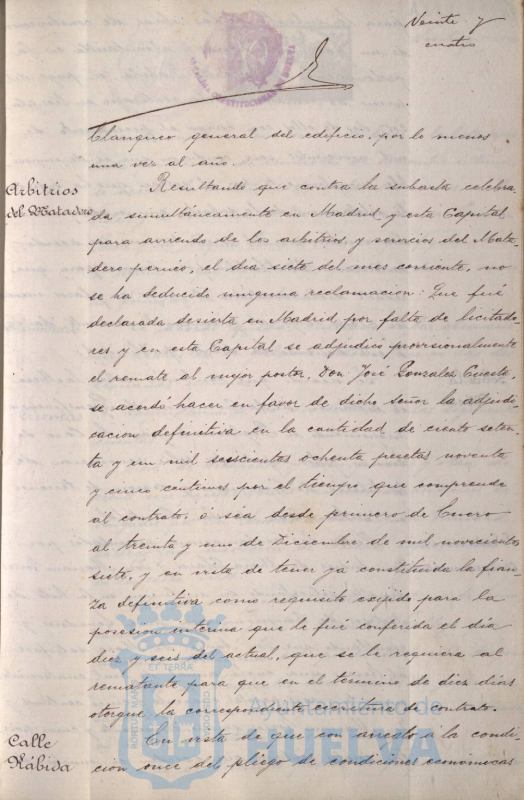 Veinte y
cuatro
blanqueo general del edificio, por lo menos
una vez al año.
Arbitrios
del Matadero
Resultando que contra la subasta celebra-
da simultáneamente en Madrid y esta Capital
para arriendo de los arbitrios y servicios del Mata-
dero perúco, el dia siete del mes corriente, no
se ha deducido ninguna reclamacion: Que fué
declarada desierta en Madrid por falta de licitado-
res y en esta Capital se adjudicó provisionalmente
el remate al mejor postor, Don José Gonzalez Cueste,
se acordó hacer en favor de dicho señor la adjudi-
cacion definitiva en la cantidad de ciento seten-
ta y un mil seiscientas ochenta pesetas noventa
y cinco céntimos por el tiempo que comprende
el contrato, ó séa desde primero de Enero
al treinta y uno de Diciembre de mil novecientos
siete, y en vista de tener yá constituida la fian-
za definitiva como requisito exijido para la
posesion interina que le fué conferida el dia
diez y seis del actual, que se le requiera al
rematante para que en el término de diez dias
otorgue la correspondiente escritura de contrato.
Calle
Rábida
En vista de que con arreglo á la condi-
cion once del pliego de condiciones económicas
Ayuntamiento de
HUELVA